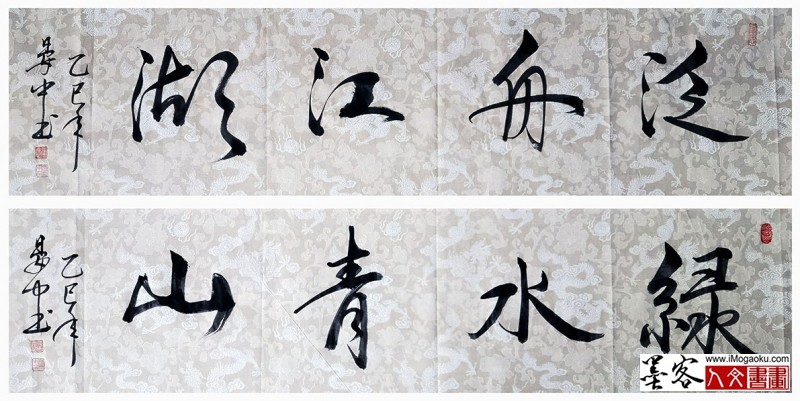 泛舟江湖
乙巳年
中书
綠水青山
乙巳年
中书
墨客
www.iMogaoku.com
人文書畫